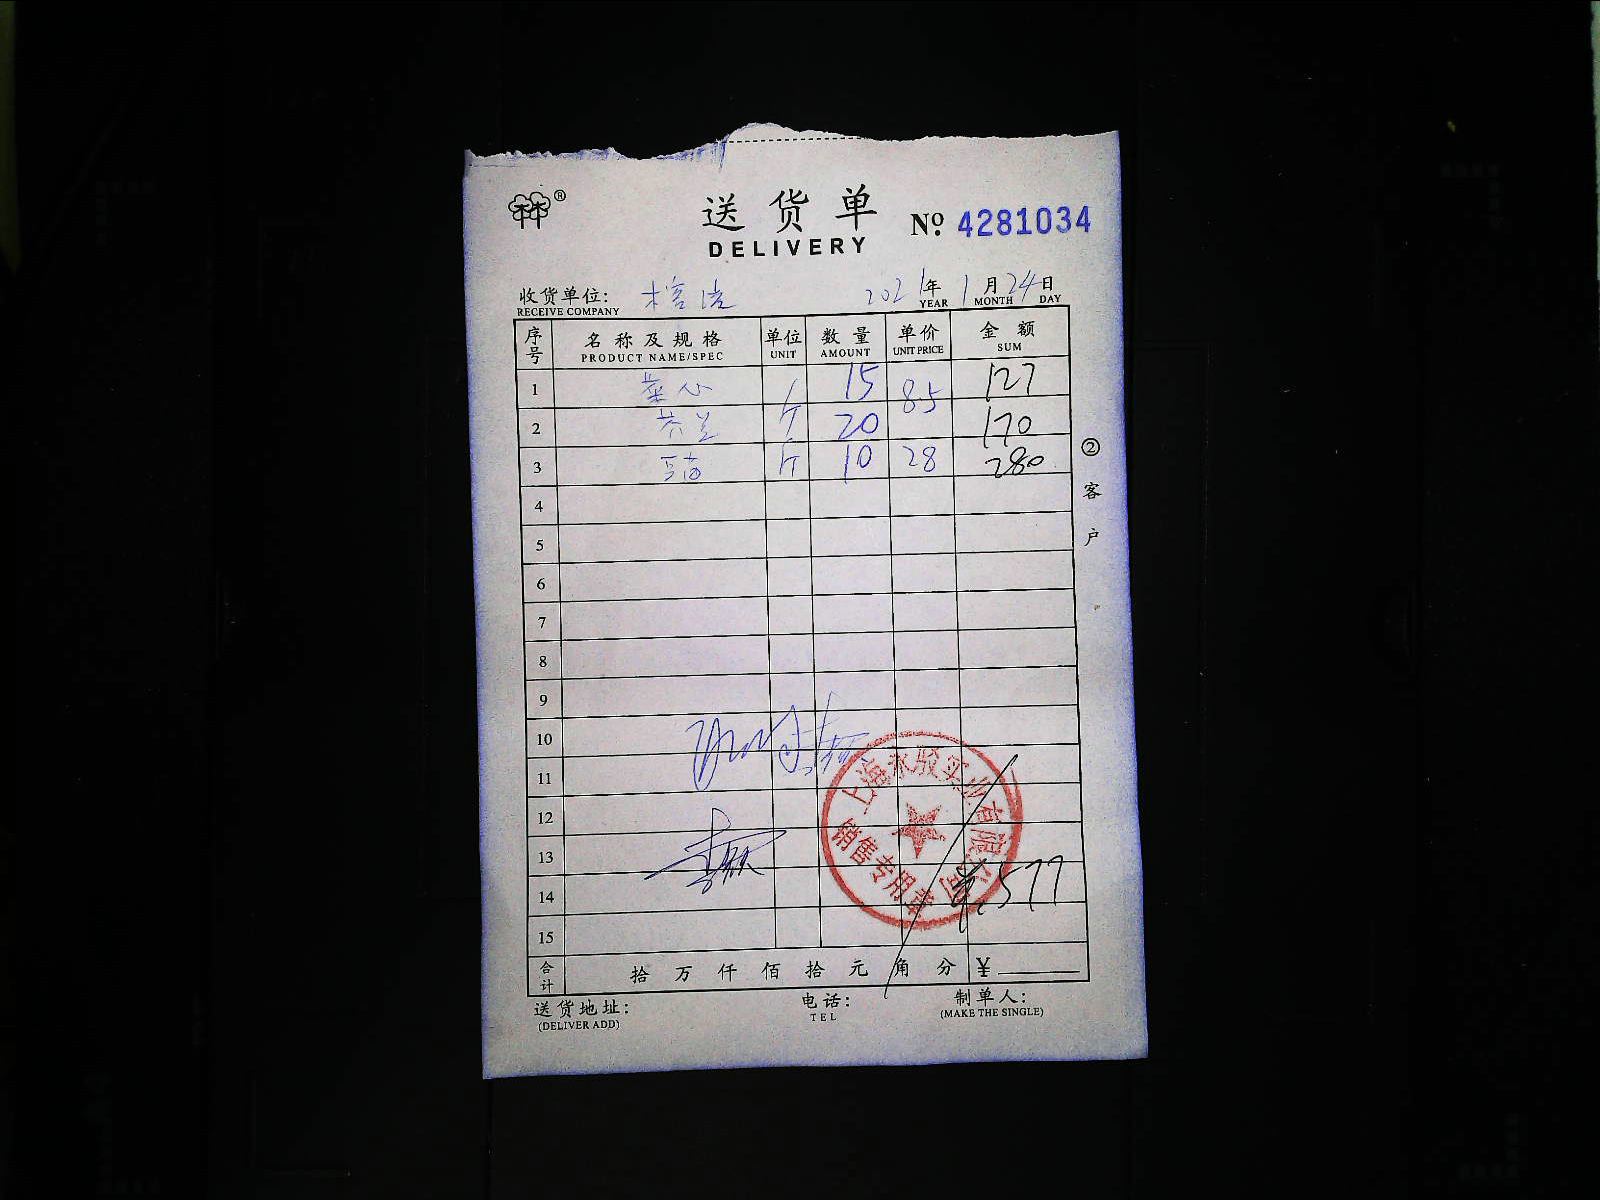 林®
送货单 № 4281034
DELIVERY
收货单位: 2021年1月24日
RECEIVE COMPANY YEAR MONTH DAY
序号 名称及规格 单位 数量 单价 金额
PRODUCT NAME/SPEC UNIT AMOUNT UNIT PRICE SUM
1 菜心 15 8.5 127
2 芥兰 斤 20 170
3 斤 10 28 280
4
5
6
7
8
9
10
11
12
13
14 577
15
合计 拾 万 仟 佰 拾 元 角 分 ¥
送货地址: 电话: 制单人:
(DELIVER ADD) TEL (MAKE THE SINGLE)
②客户
上海永股实业有限公司
销售专用章